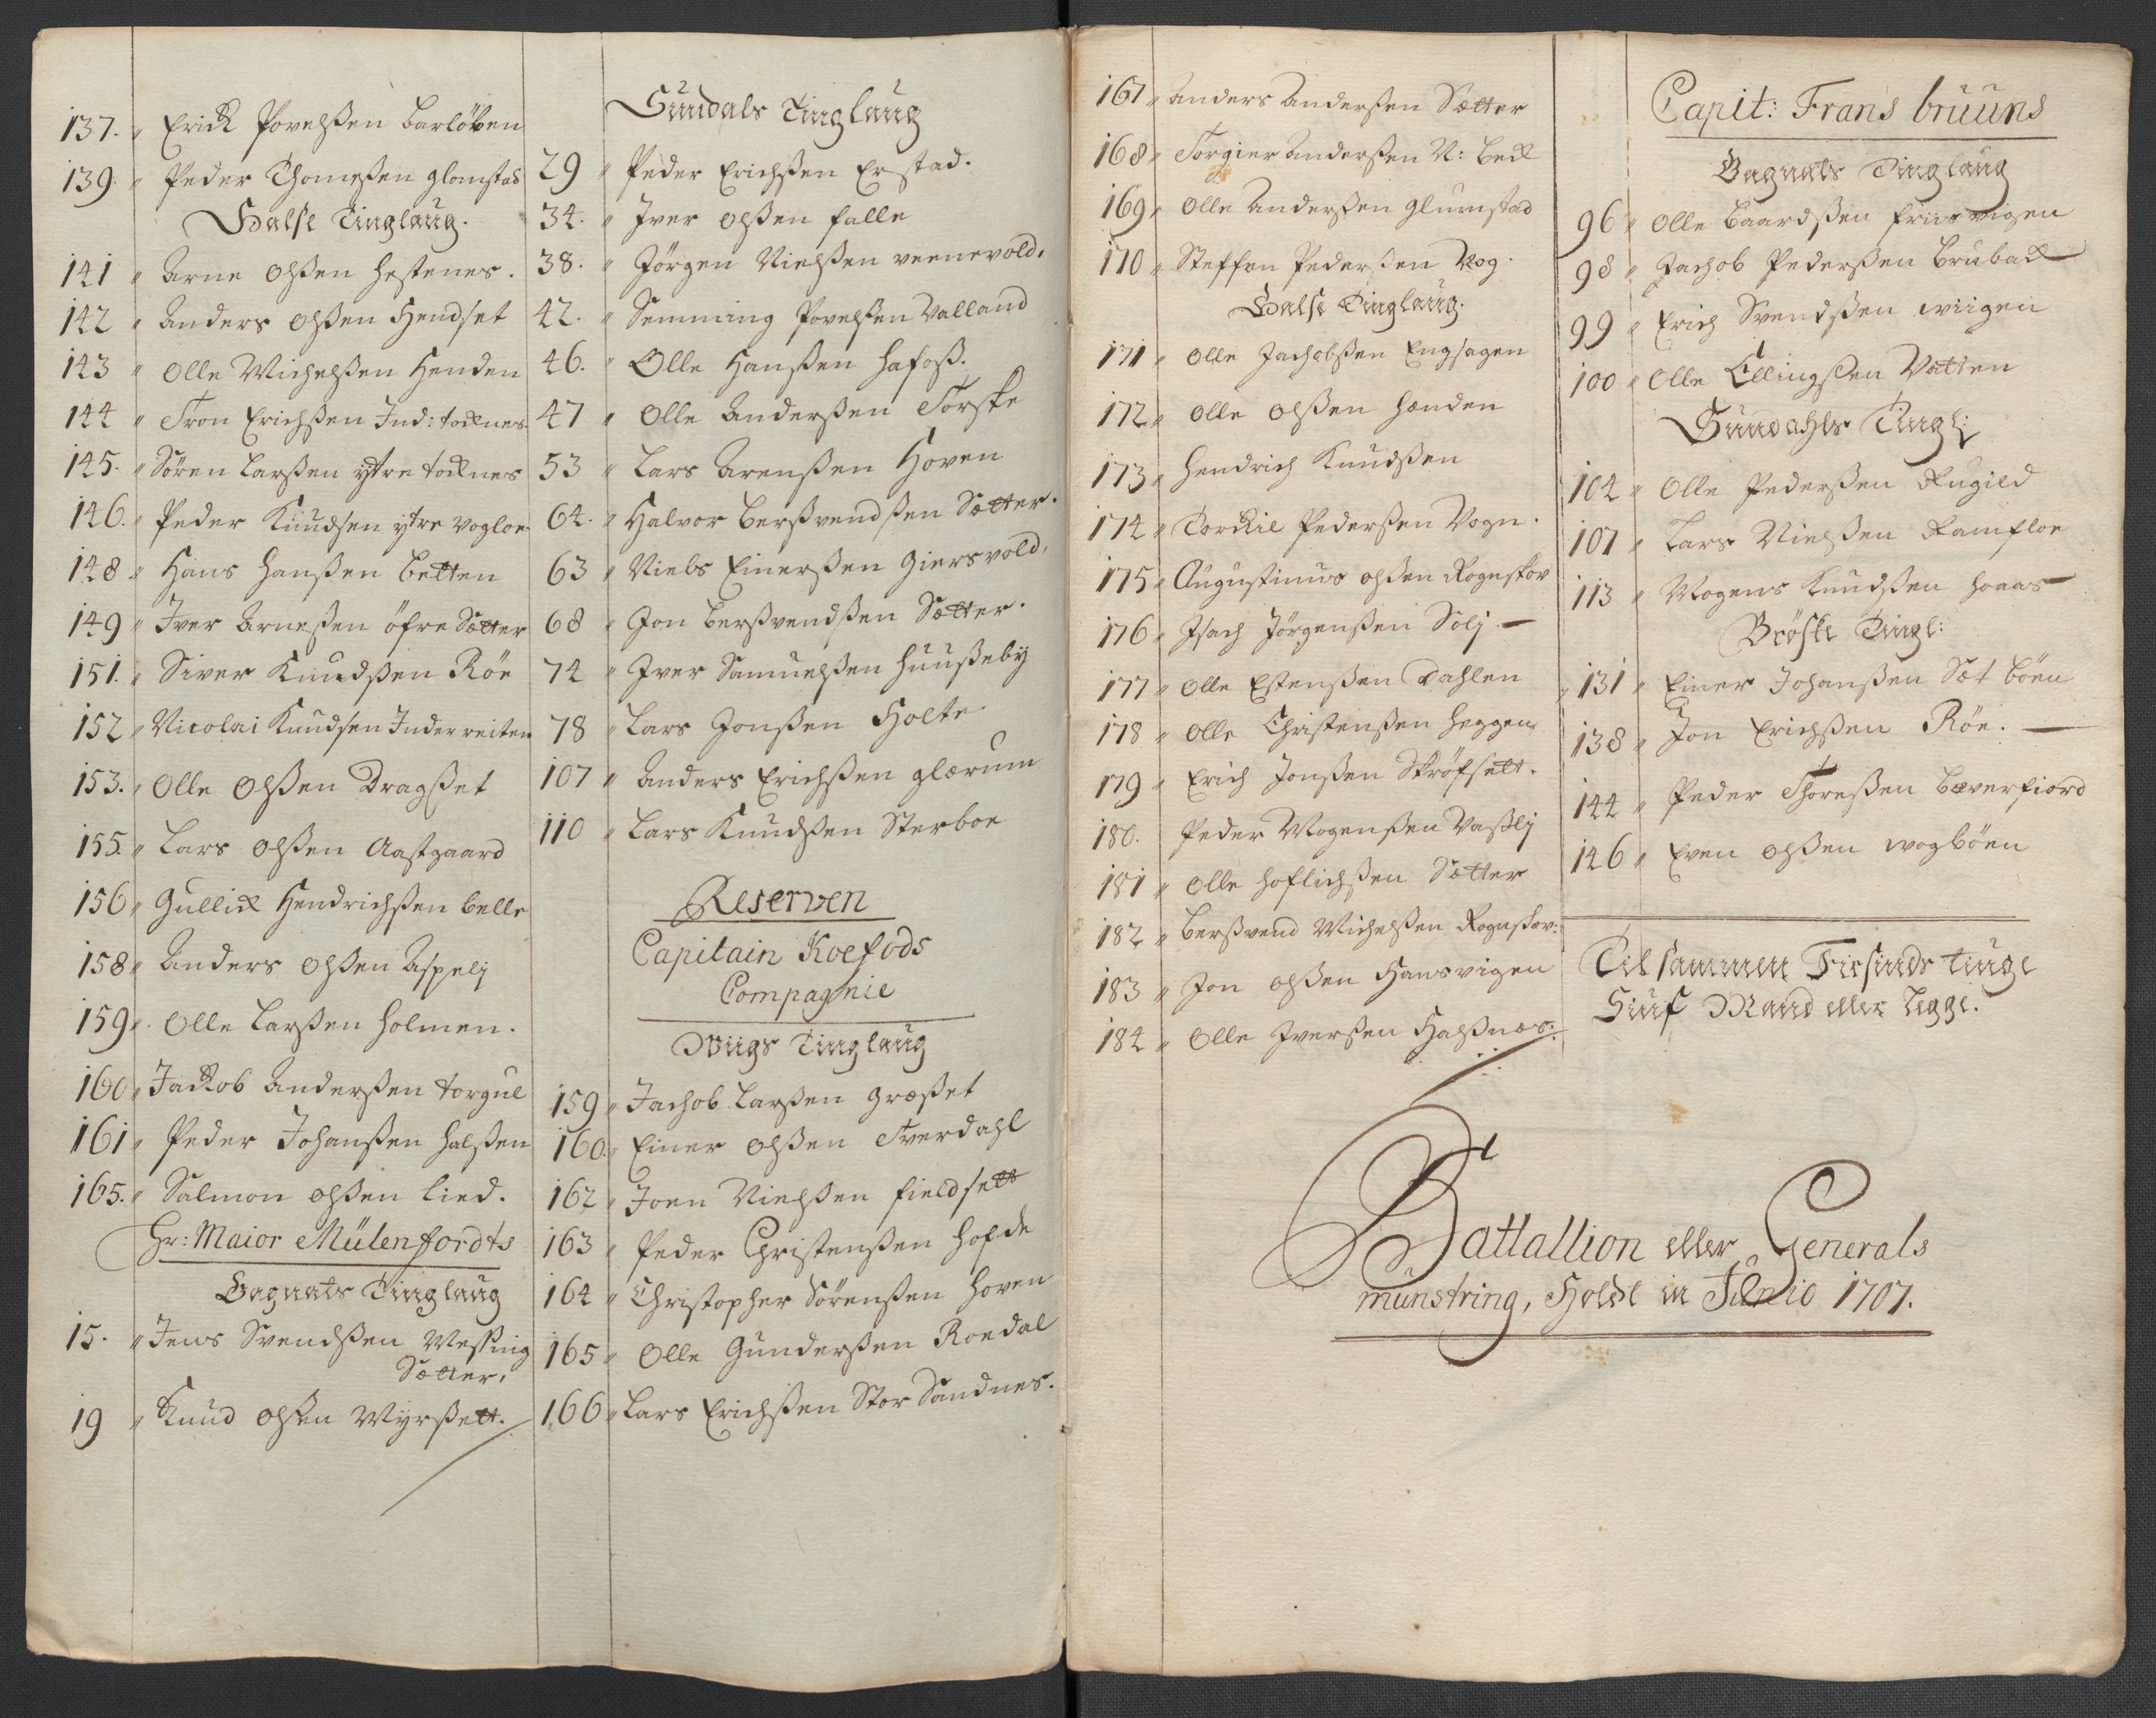 137. " Erick Povelßen Barløben
139. " Peder Thomeßen glomstad
Halse Tinglaug.
141 " Arne Olßen Hestenes.
142 " Anders Olßen Hendset
143 " Olle Michelßen Henden
144 " Tron Erichßen Ind: tocknes
145. " Sören Larßen ytre tocknes
146. " Peder Knudsen ytre vogloe
148 " Hans Hanßen betten
149 " Iver Arneßen öfre Sætter
151. " Siver Knudßen Röe
152 " Nicolai Knudsen Inder reiten
153. " Olle Olßen Dragßet
155. " Lars Olßen Aastgaard
156 " Gullick Hendrichßen belle
158 " Anders Olßen Aspelj
159 " Olle Larßen Holmen.
160 " Jackob Anderßen torgul
161 " Peder Johanßen halsßen
165. " Salmon Olßen lied.
Hr: Maior Mülenfordts
Gagnats Tinglaug
15. " Jens Svendßen Messing
Sætter,
19 " Knud Olßen Myrßett.
Sundals Tinglaug
29 " Peder Erichßen Erstad.
34. " Iver Olßen falle
38. " Jörgen Nielßen veenevold.
42. " Semming Povelßen Valland
46. " Olle Hanßen hafoß.
47 " Olle Anderßen Torske
53 " Lars Arenßen Hoven
64. " Halvor Berßvendßen Sætter.
63 " Niels Einerßen Giersvold.
68 " Jon Berßvendßen Sætter.
74 " Iver Samuelßen Huußeby
78 " Lars Jonßen Holte
107 " Anders Erichßen glærum
110 " Lars Knudßen Sterboe
Reserven
Capitain Koefods
Compagnie
Wiigs Tinglaug
159 " Jachob Larßen Græßet
160. " Einer Olßen Tverdahl
162 " Joen Nielßen fieldsett
163 " Peder Christenßen hofde
164 " Christopher Sörenßen hoven
165 " Olle Gunderßen Roedal
166 " Lars Erichßen Stor Sandnes.
167 " Anders Anderßen Sætter
168 " Torgier Anderßen N: Beck
169 " Olle Anderßen glumstad
170 " Steffen Pederßen Vog.
Halse Tinglaug.
171 " Olle Jachobßen Engsagen
172 " Olle Olßen Henden
173 " Hendrich Knudßen
174 " Torckil Pederßen Vogn.
175 " Augustinus Olßen Rognskov
176 " Isach Jörgenßen Solj —
177 " Olle Estenßen Dahlen
178 " Olle Christenßen heggem
179 " Erich Jonßen Skröfsett.
180. Peder Mogenßen Vaßlj
181 " Olle hoflichßen Sætter
182 " Berßvend Michelßen Rognskov:
183 " Jon Olßen Hansvigen
184 " Olle Iverßen Halßnæs.
Capit: Frans bruuns
Gagnats Tinglaug
96 " Olle Baardßen friisvigen
98 " Jachob Pederßen Bruback
99 " Erich Svendßen wiigen
100 " Olle Ellingßen Vatten
Sundahls Tingl:
104 " Olle Pederßen Rugild
107 " Lars Nielßen Ramfloe
113 " Mogens Knudßen hoaas
Bröske Tingl:
131 " Einer Johanßen Sæt böen
138 " Jon Erichßen Röe. —
144 " Peder Thoreßen Bæverfiord
146 " Even Olßen wogböen
Til sammen Firsinds tiuge
Siuf Mand eller legge.
Battallion eller Generals
munstring, Holdt in Junio 1707.